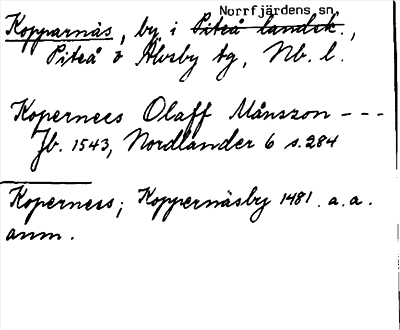 Norrfjärdens sn
Kopparnäs, by, i Piteå landsk.,
Piteå o Älvsby tg, Nb. l.
Kopernees Olaff Månszon - - -
Jb. 1543, Nordlander 6 s. 284
Koperness; Koppernäsby 1481. a. a.
anm.